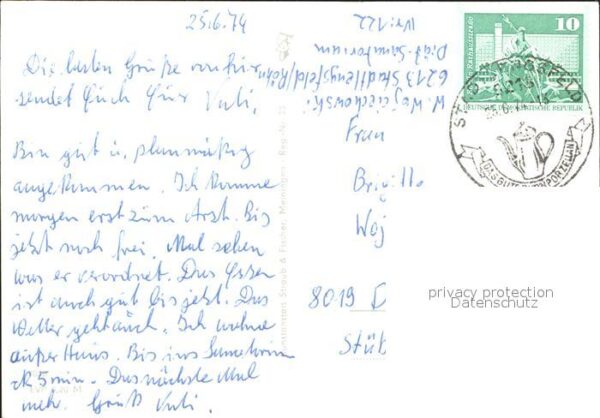 25.6.74
Die besten Grüße von hier
sendet Euch Euer Vati.
Bin gut u. planmäßig
angekommen. Ich komme
morgen erst zum Arzt. Bis
jetzt noch frei. Mal sehen
was er verordnet. Das Essen
ist auch gut bis jetzt. Das
Wetter geht auch. Ich wohne
außer Haus. Bis ins Sanatorium
ca 5 min. Das nächste Mal
mehr. Gruß Vati.
W. Wojciechowski
6213 Stadtlengsfeld/Rhön
Diät-Sanatorium
Nr: 122
Kunstanstalt Straub & Fischer, Meiningen Reg.-Nr.
EVP 0,20 M
Frau
Brigitte
Woj
8019
10
Rathausstraße
DEUTSCHE DEMOKRATISCHE REPUBLIK
STADTLENGSFELD
DAS GUTE PORZELLAN
privacy protection
Datenschutz